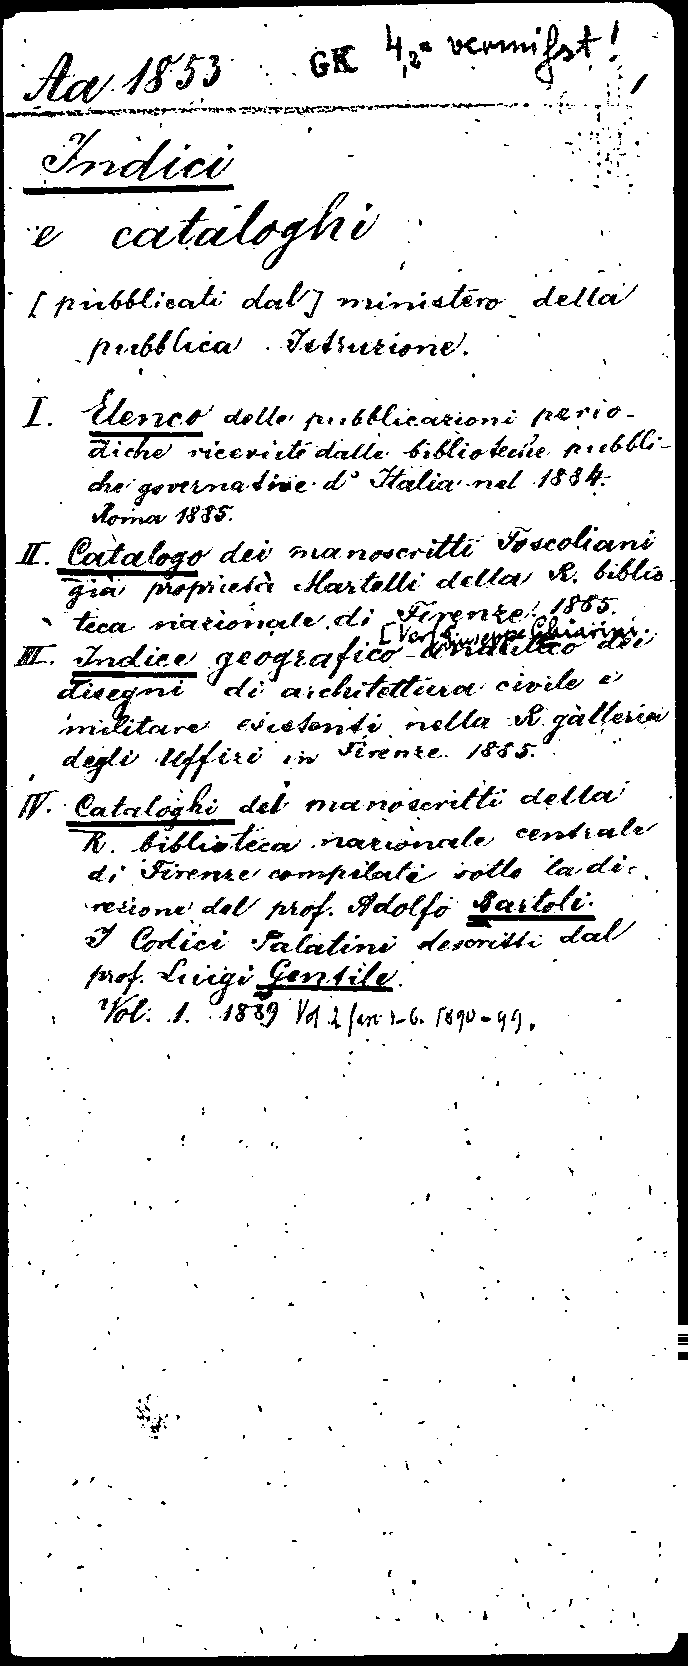 Aa 1853 GK 4,2a vermißt!
Indici
e cataloghi
[pubblicati dal] ministero della
pubblica Istruzione.
I. Elenco delle pubblicazioni perio-
diche ricevute dalle biblioteche pubbli-
che governative d'Italia nel 1884.
Roma 1885.
II. Catalogo dei manoscritti Foscoliani
già proprietà Martelli della R. biblio-
teca nazionale di Firenze. 1885.
[Verf. Giuseppe Chiarini.
III. Indice geografico-analitico dei
disegni di architettura civile e
militare esistenti nella R. galleria
degli Uffizi in Firenze. 1885.
IV. Cataloghi dei manoscritti della
R. biblioteca nazionale centrale
di Firenze compilati sotto la di-
rezione del prof. Adolfo Bartoli.
I Codici Palatini descritti dal
prof. Luigi Gentile.
Vol. 1. 1889 Vol. 2 fasc 1-6. 1890-99.